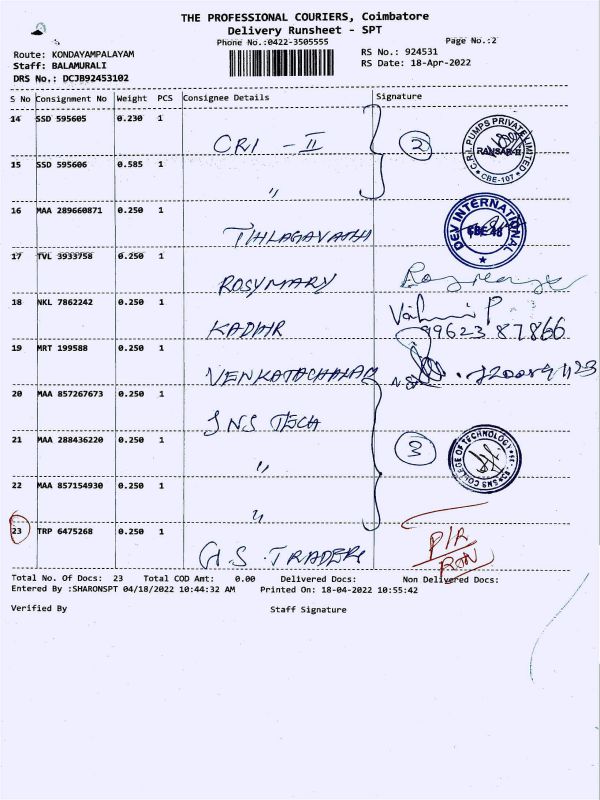 THE PROFESSIONAL COURIERS, Coimbatore
Delivery Runsheet - SPT
Phone No.:0422-3505555
Page No.:2
Route: KONDAYAMPALAYAM
RS No.: 924531
Staff: BALAMURALI
RS Date: 18-Apr-2022
DRS No.: DCJB92453102
S No Consignment No Weight PCS Consignee Details Signature
14 SSD 595605 0.230 1
CRI - II
2
C.R.I. PUMPS PRIVATE LIMITED
CBE-107
15 SSD 595606 0.585 1
"
16 MAA 289660871 0.250 1
THLAGAVATHI
DEV INTERNATIONAL
17 TVL 3933758 0.250 1
ROSYMARY
18 NKL 7862242 0.250 1
KADHIR
99623 87866
19 MRT 199588 0.250 1
VENKATACHALAM
20 MAA 857267673 0.250 1
SNS TECH
21 MAA 288436220 0.250 1
"
3
SNS COLLEGE OF TECHNOLOGY
22 MAA 857154930 0.250 1
"
23 TRP 6475268 0.250 1
G.S. TRADERS
P/R
Total No. Of Docs: 23 Total COD Amt: 0.00 Delivered Docs: Non Delivered Docs:
Entered By :SHARONSPT 04/18/2022 10:44:32 AM Printed On: 18-04-2022 10:55:42
Verified By Staff Signature